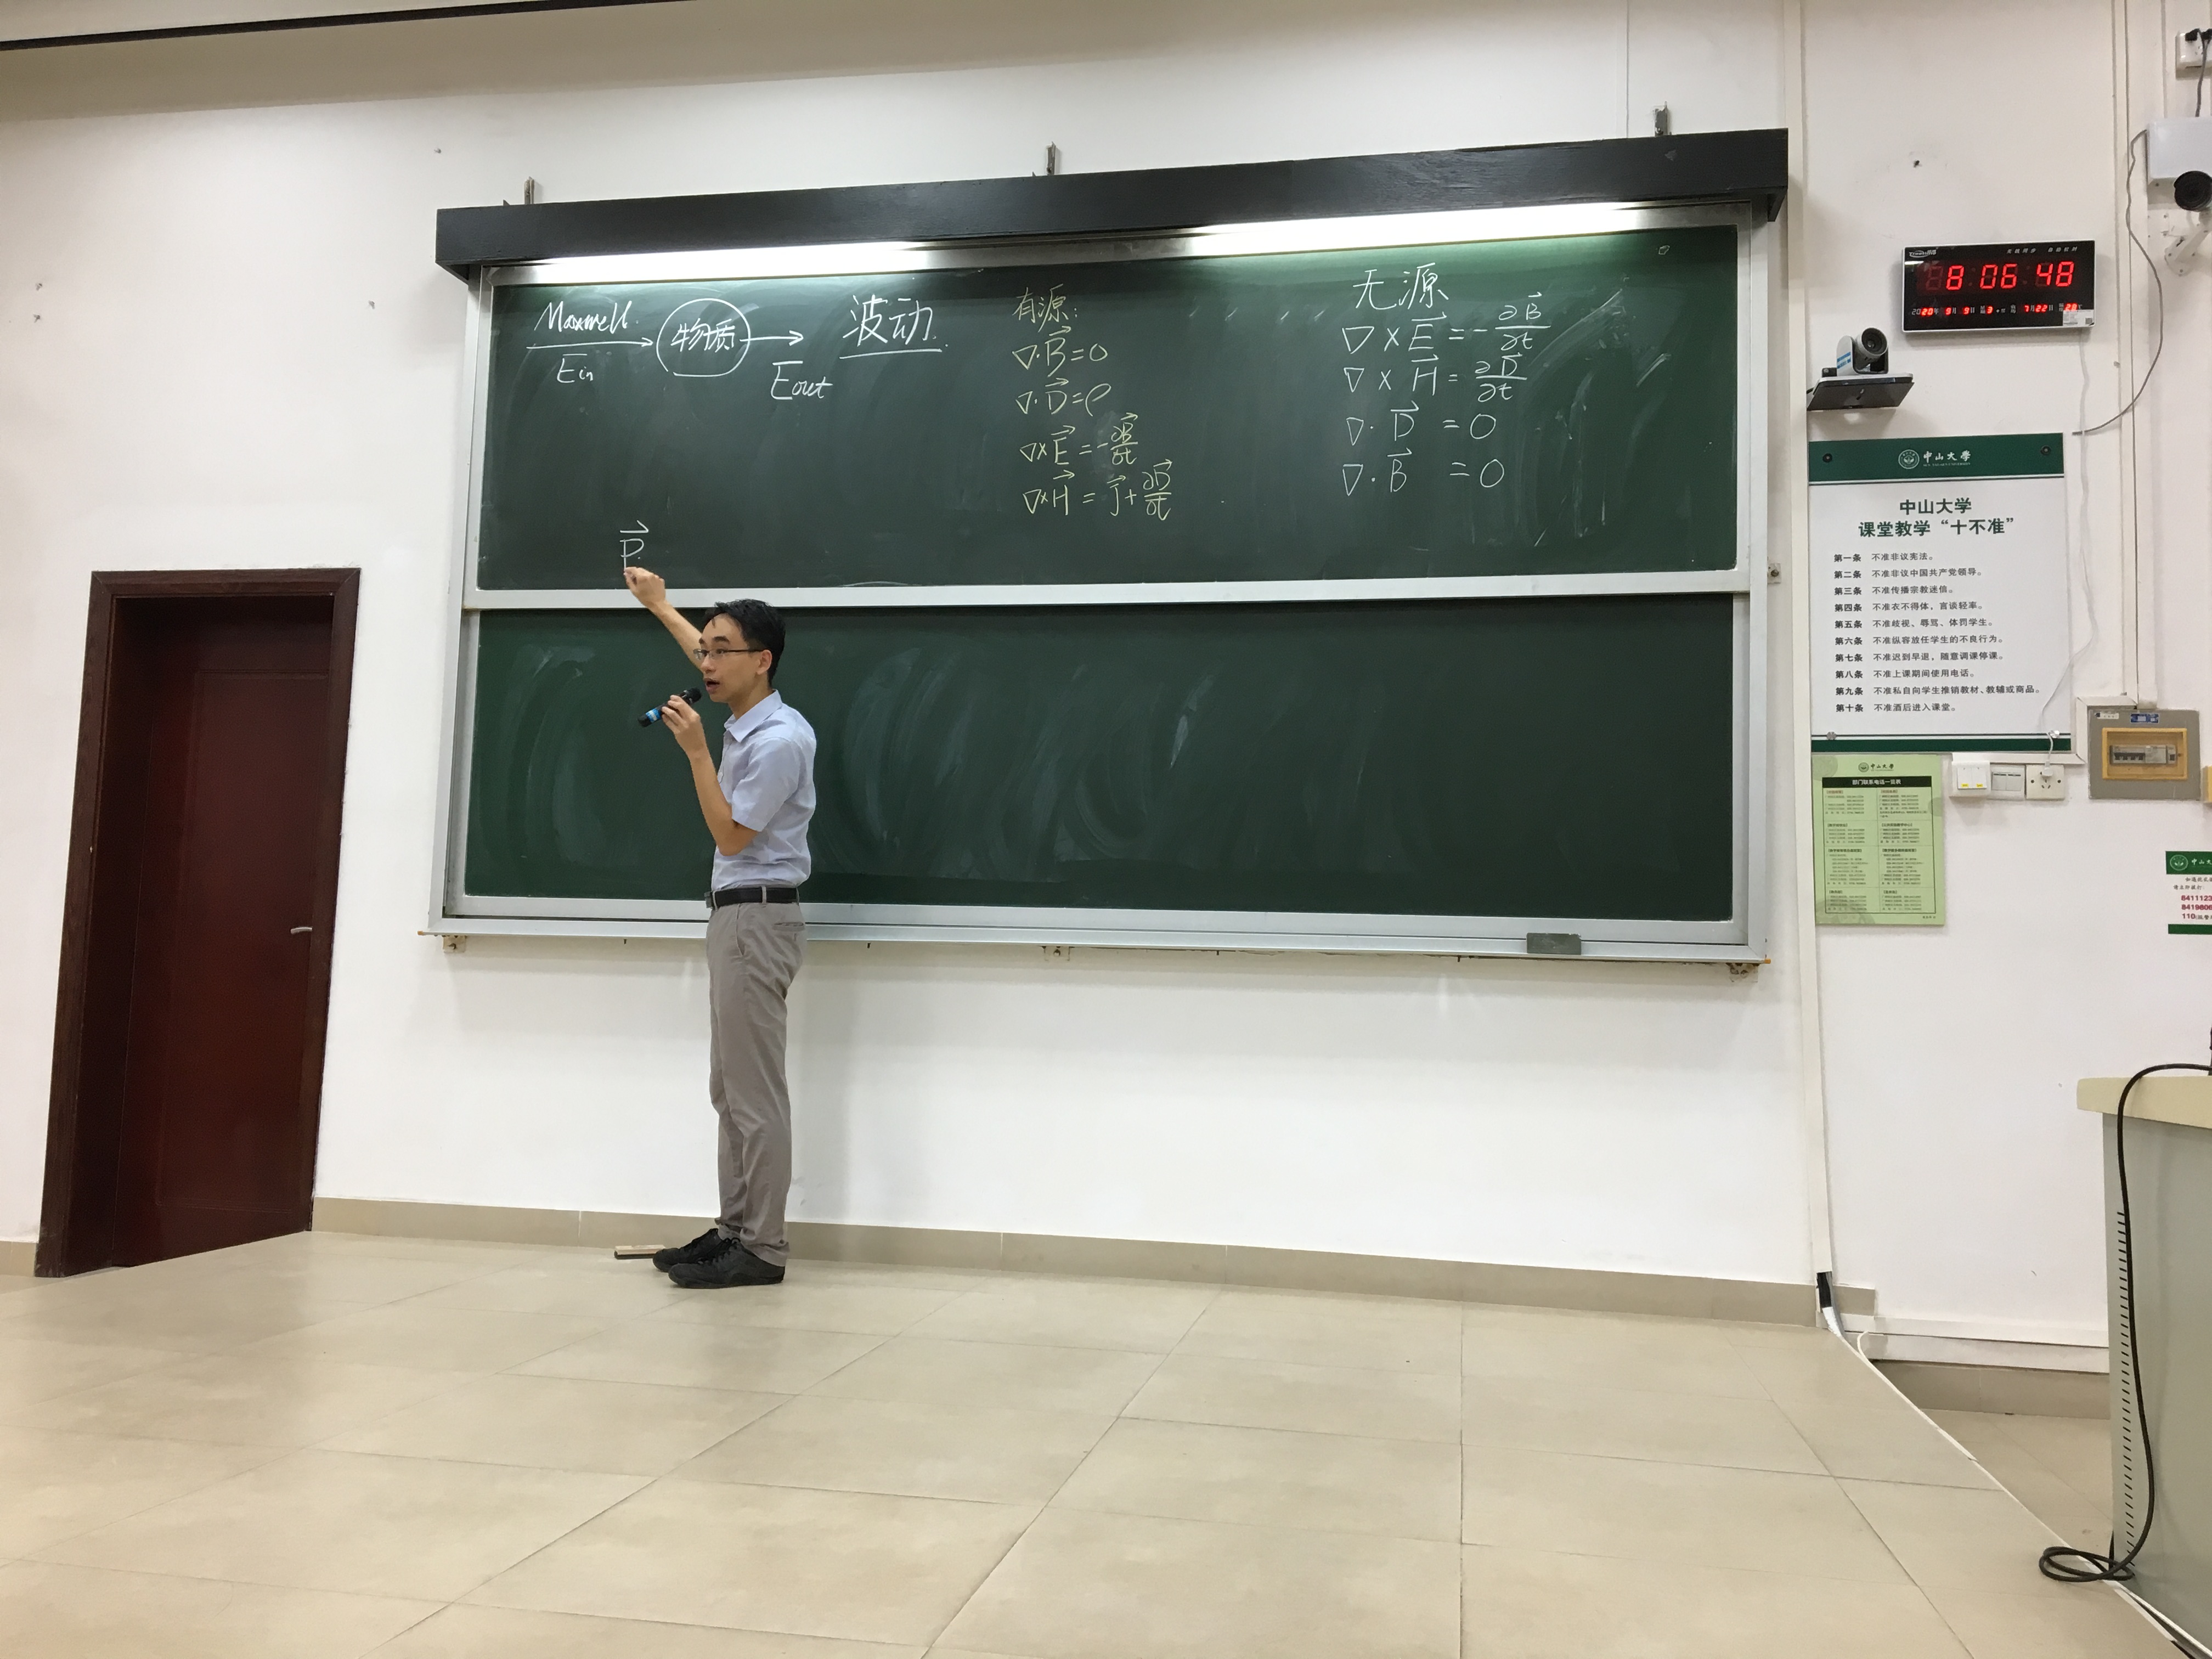 Maxwell
Ein
物质
Eout
波动
P⃗
有源:
∇·B⃗=0
∇·D⃗=ρ
∇×E⃗=-∂B⃗/∂t
∇×H⃗=J⃗+∂D⃗/∂t
无源
∇×E⃗=-∂B⃗/∂t
∇×H⃗=∂D⃗/∂t
∇·D⃗=0
∇·B⃗=0
8:06:48
中山大学
中山大学
课堂教学“十不准”
第一条 不准非议宪法。
第二条 不准非议中国共产党领导。
第三条 不准传播宗教迷信。
第四条 不准衣不得体，言谈轻率。
第五条 不准歧视、辱骂、体罚学生。
第六条 不准纵容放任学生的不良行为。
第七条 不准迟到早退，随意调课停课。
第八条 不准上课期间使用电话。
第九条 不准私自向学生推销教材、教辅或商品。
第十条 不准酒后进入课堂。
中山大学
部门联系电话一览表
中山大
8411123
8419606
110